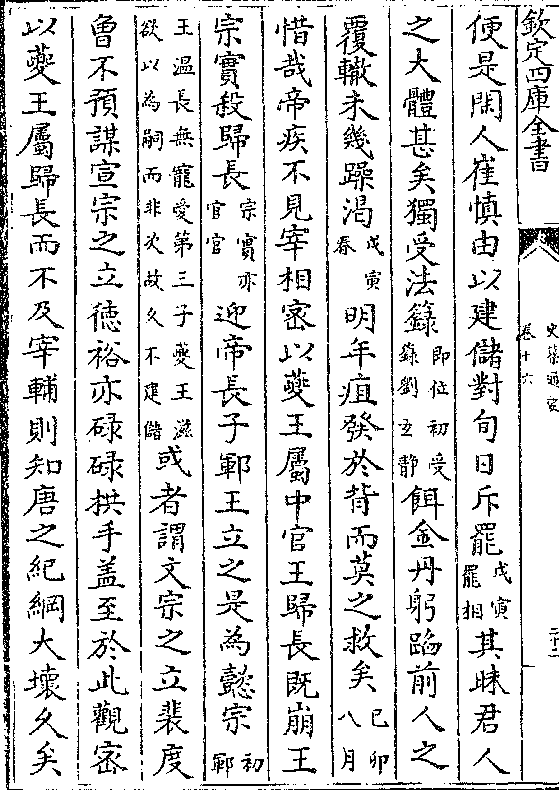 欽定四庫全書
史纂通要
卷十六
便是閑人崔慎由以建儲對旬日斥罷戊寅罷相其昧君人
之大體甚矣獨受法籙即位初受籙劉玄静餌金丹躬蹈前人之
覆轍未幾躁渴戊寅春明年疽發於背而莫之救矣已卯八月
惜哉帝疾不見宰相密以夔王屬中官王歸長既崩王
宗實殺歸長宗實亦官官迎帝長子鄆王立之是為懿宗初鄆
王温長無寵愛第三子夔王滋欲以為嗣而非次故久不建儲或者謂文宗之立裴度
曾不預謀宣宗之立德裕亦碌碌拱手盖至於此觀密
以夔王屬歸長而不及宰輔則知唐之紀綱大壞久矣